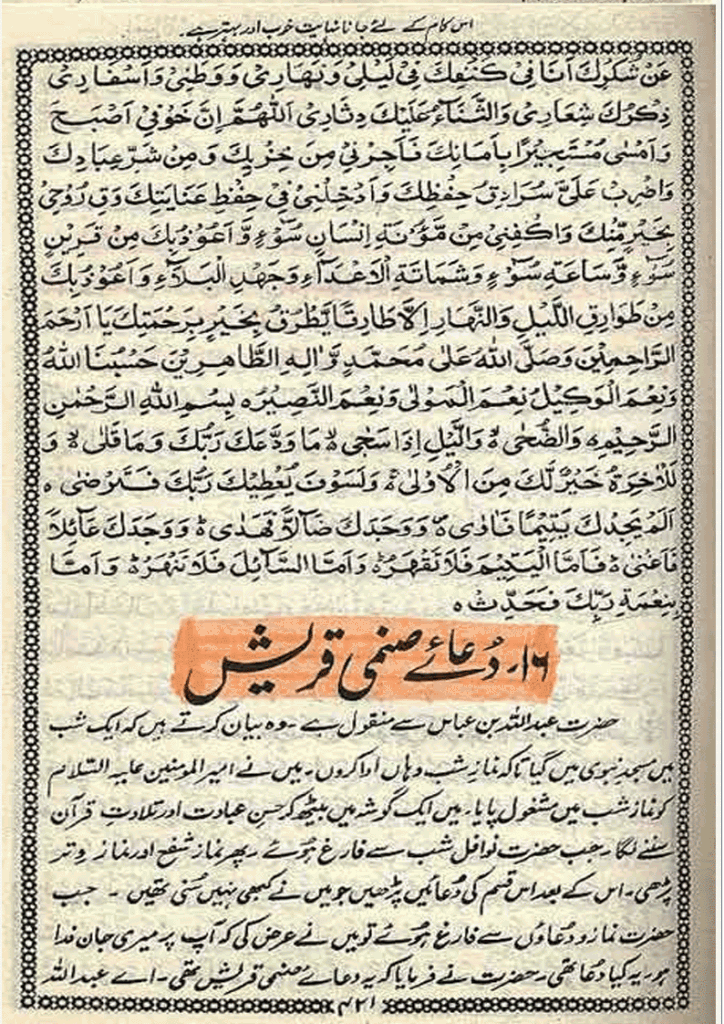 اس کام کے لئے جانا نہایت خوب اور بہتر ہے۔
عَنْ شُكْرِكَ اَنَا فِيْ كَنَفِكَ فِيْ لَيْلِيْ وَنَهَارِيْ وَوَطَنِيْ وَاَسْفَارِيْ
ذِكْرُكَ شِعَارِيْ وَالثَّنَآءُ عَلَيْكَ دِثَارِيْ اَللّٰهُمَّ اِنَّ خَوْفِيْ اَصْبَحَ
وَاَمْسٰى مُسْتَجِيْرًا بِاَمَانِكَ فَاَجِرْنِيْ مِنْ خِزْيِكَ وَمِنْ شَرِّ عِبَادِكَ
وَاضْرِبْ عَلَيَّ سُرَادِقَ حِفْظِكَ وَاَدْخِلْنِيْ فِيْ حِفْظِ عَنَايَتِكَ وَقِ رُوْحِيْ
بِخَيْرٍ مِّنْكَ وَاكْفِنِيْ مِنْ مَّؤُنَةِ اِنْسَانِ سُوْٓءٍ وَّاَعُوْذُ بِكَ مِنْ قَرِيْنِ
سُوْٓءٍ وَّسَاعَةِ سُوْٓءٍ وَشَمَاتَةِ الْاَعْدَآءِ وَجَهْلِ الْبَلَآءِ وَاَعُوْذُ بِكَ
مِنْ طَوَارِقِ اللَّيْلِ وَالنَّهَارِ اِلَّا طَارِقًا يَّطْرُقُ بِخَيْرٍ بِرَحْمَتِكَ يَا اَرْحَمَ
الرَّاحِمِيْنَ وَصَلَّى اللّٰهُ عَلٰى مُحَمَّدٍ وَّاٰلِهِ الطَّاهِرِيْنَ حَسْبُنَا اللّٰهُ
وَنِعْمَ الْوَكِيْلُ نِعْمَ الْمَوْلٰى وَنِعْمَ النَّصِيْرُ ہ بِسْمِ اللّٰهِ الرَّحْمٰنِ
الرَّحِيْمِ ہ وَالضُّحٰى ہ وَالَّيْلِ اِذَا سَجٰى ہ مَا وَدَّعَكَ رَبُّكَ وَمَا قَلٰى ہ وَ
لَلْاٰخِرَةُ خَيْرٌ لَّكَ مِنَ الْاُوْلٰى ہ وَلَسَوْفَ يُعْطِيْكَ رَبُّكَ فَتَرْضٰى ہ
اَلَمْ يَجِدْكَ يَتِيْمًا فَاٰوٰى ہ وَوَجَدَكَ ضَآلًّا فَهَدٰى ہ وَوَجَدَكَ عَآئِلًا
فَاَغْنٰى ہ فَاَمَّا الْيَتِيْمَ فَلَا تَقْهَرْ ہ وَاَمَّا السَّآئِلَ فَلَا تَنْهَرْ ہ وَاَمَّا
بِنِعْمَةِ رَبِّكَ فَحَدِّثْ ہ
۱۶۔ دُعائے صنمی قریش
حضرت عبداللہ بن عباس سے منقول ہے۔ وہ بیان کرتے ہیں کہ ایک شب
میں مسجد نبوی میں گیا تاکہ نمازِ شب وہاں ادا کروں۔ میں نے امیر المومنین علیہ السّلام
کو نماز شب میں مشغول پایا۔ میں ایک گوشہ میں بیٹھ کر حسنِ عبادت اور تلاوتِ قرآن
سننے لگا۔ جب حضرت نوافل شب سے فارغ ہوئے۔ پھر نماز شفع اور نماز وتر
پڑھی۔ اس کے بعد اس قسم کی دُعائیں پڑھیں جو میں نے کبھی نہیں سُنی تھیں۔ جب
حضرت نماز و دعاؤں سے فارغ ہُوئے تو میں نے عرض کی کہ آپ پر میری جان فدا
ہو۔ یہ کیا دُعا تھی۔ حضرت نے فرمایا کہ یہ دعائے صنمی قریش تھی۔ اے عبداللہ
۴۲۱